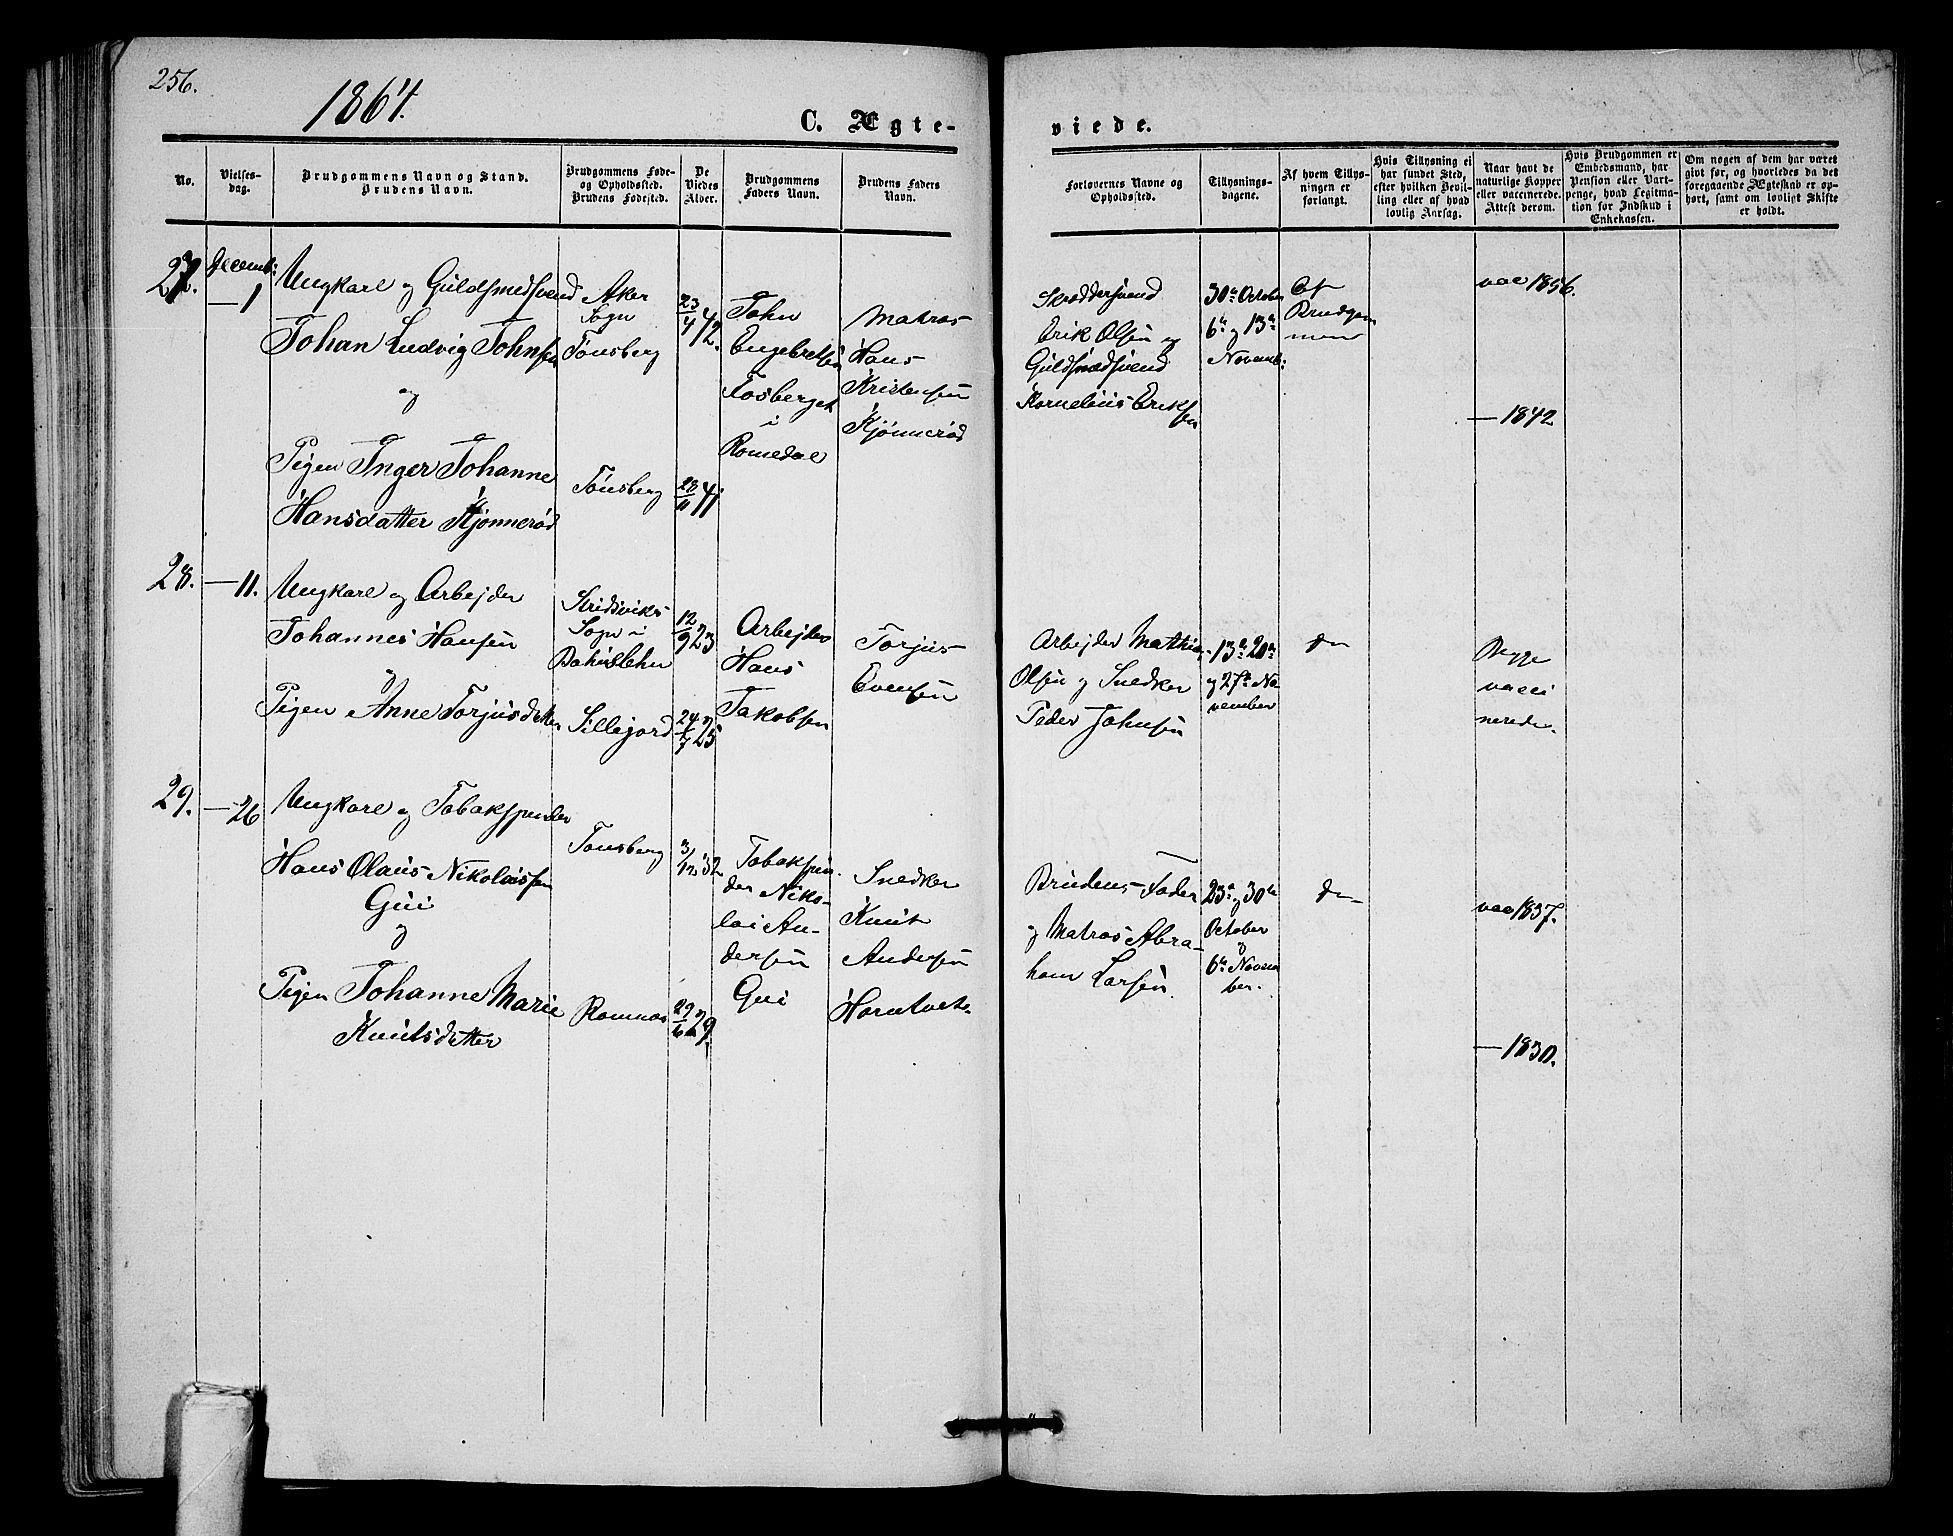 256.
1864.
C. Ægte-
viede.
No.
Vielses-
dag.
Brudgommens Navn og Stand.
Brudens Navn.
Brudgommens Føde-
og Opholdssted.
Brudens Fødested.
De
Viedes
Alder.
Brudgommens
Faders Navn.
Brudens Faders
Navn.
Forlovernes Navne og
Opholdssted.
Tillysnings-
dagene.
Af hvem Tillys-
ningen er
forlangt.
Hvis Tillysning ei
har fundet Sted,
efter hvilken Bevil-
ling eller af hvad
lovlig Aarsag.
Naar havt de
naturlige Kopper
eller vaccinerede.
Attest derom.
Hvis Brudgommen er
Embedsmand, har
Pension eller Vart-
penge, hvad Legitima-
tion for Indskud i
Enkekassen.
Om nogen af dem har været
givt før, og hvorledes da det
foregaaende Ægteskab er op-
hørt, samt om lovligt Skifte
er holdt.
27.
Decemb:
— 1
Ungkarl og Guldsmedsvend
Johan Ludvig Johnsen
og
Pigen Inger Johanne
Hansdatter Kjønnerød
Aker
Sogn
Tønsberg
Tønsberg
23/4 42.
28/11 41
John
Engebretsen
Fosberget
i
Romedal
Matros
Hans
Kristensen
Kjønnerød
Skræddersvend
Erik Olsen og
Guldsmedsvend
Kornelius Erik
sen
30te October
6te og 13de
Novemb:
Af
Brudgom
men
vac 1856.
— 1842
28.
— 11.
Ungkarl og Arbejder
Johannes Hansen
og
Pigen Anne Torjusdatter
Sogn i
Bahuslehn
Sillejord
12/9 23
24/7 25
Arbejder
Hans
Jakobsen
Torjus
Evensen
Arbejder Mathias
Olsen og Snedker
Peder Johnsen
13de 20de
og 27de No
vember
do
Begge
vacci
nerede.
29.
— 26
Ungkarl og Tobakspinder
Hans Olaus Nikolaisen
Gui
og
Pigen Johanne Marie
Knutsdatter
Tønsberg
Ramnæs
3/12 32
29/6 29.
Tobakspin
der Niko-
lai An-
dersen
Gui
Snedker
Knut
Andersen
Horntvet.
Brudens Fader
og Matros Abra-
ham Larsen
23de og 30te
October
og
6te Novem
ber.
do
vac 1837.
— 1830.